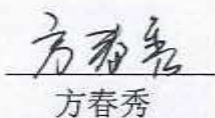 方春秀
方春秀